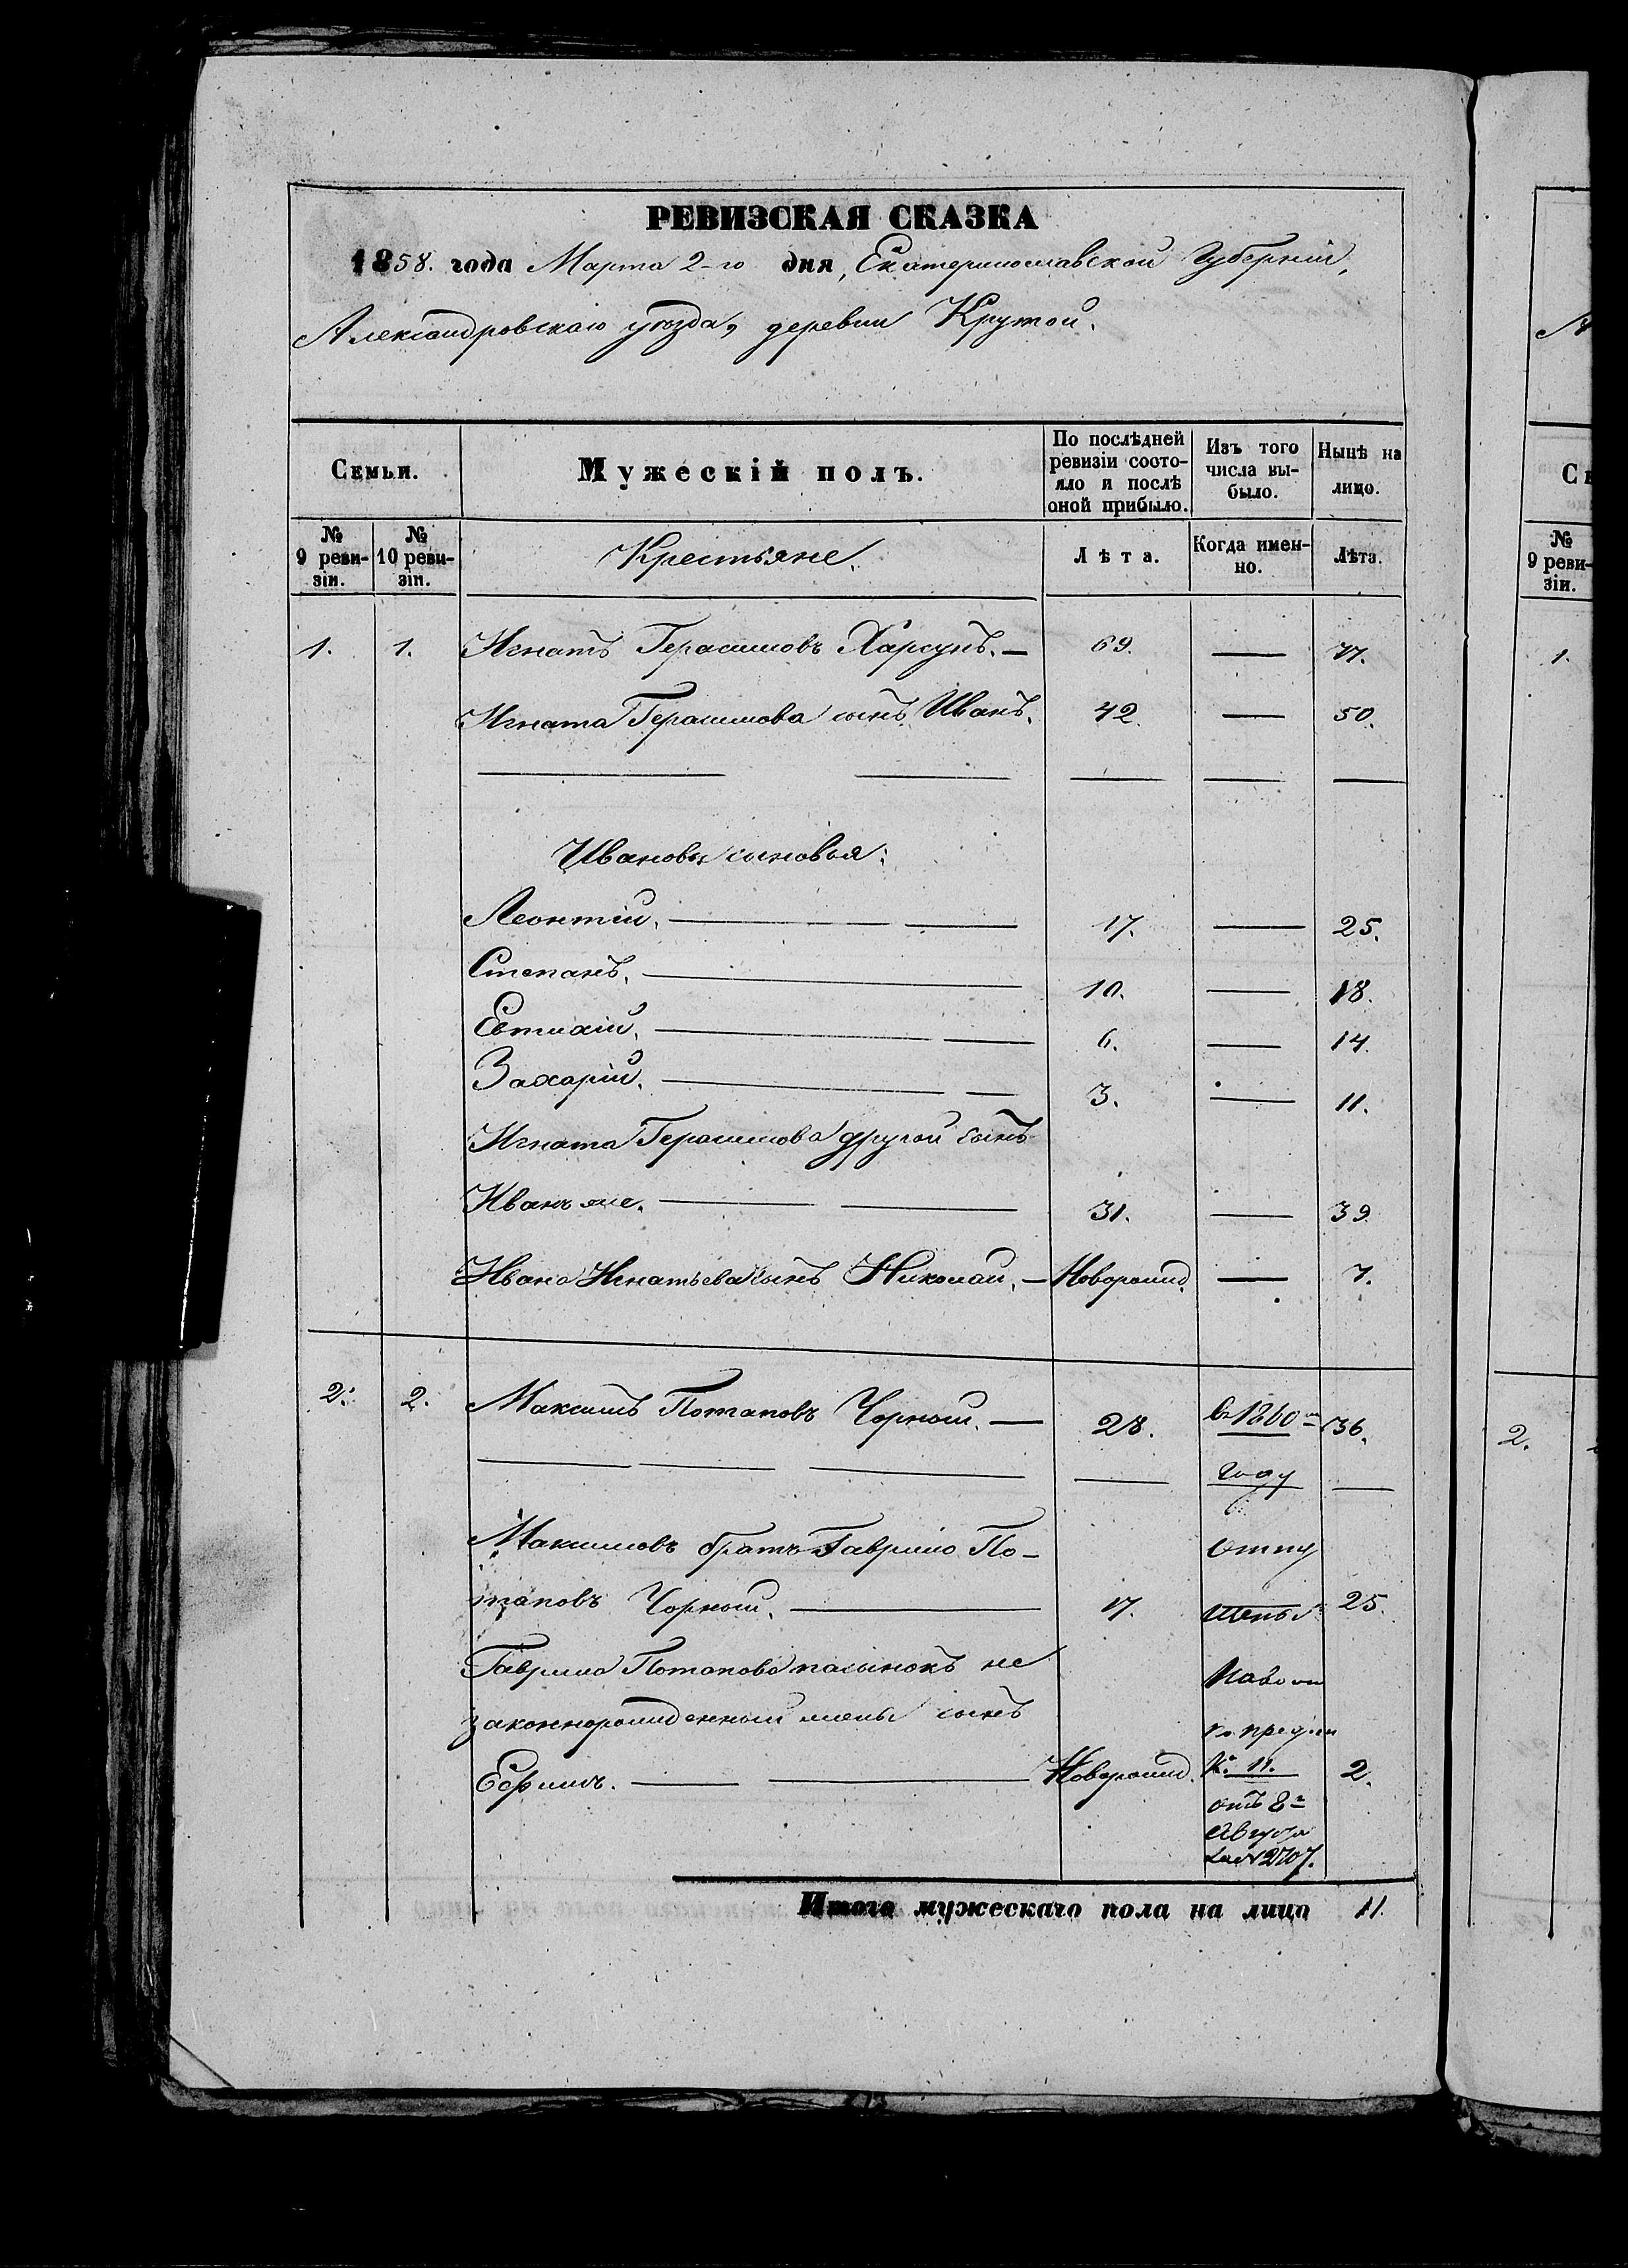 РЕВИЗСКАЯ СКАЗКА
1858. года Марта 2-го дня, Екатеринославской Губерніи,
Александровскаго уѣзда, деревни Крутой.
Семьи. Мужескій полъ. По послѣдней ревизіи состояло и послѣ оной прибыло. Изъ того числа выбыло. Нынѣ на лицо.
№ 9 ревизіи. № 10 ревизіи. Крестьяне. Лѣта. Когда именно. Лѣта.
1. 1. Игнатъ Герасимовъ Харсунъ. — 69. — 77.
Игната Герасимова сынъ Иванъ. 42. — 50.
Ивановы сыновья:
Леонтій. — 17. — 25.
Степанъ. — 10. — 18.
Евтихій. — 6. — 14.
Захарій. — 3. — 11.
Игната Герасимова другой сынъ
Иванъ же. — 31. — 39
Ивана Игнатьева сынъ Николай. — Новорожд. — 7.
2. 2. Максимъ Потаповъ Чорный. — 28. въ 1860 36.
году
Максимовъ братъ Гаврило По-
таповъ Чорный. — 17. 25.
отпу
щенъ
Гаврила Потапова пасынокъ не
законнорожденный жены сынъ
Ефимъ. — Новорожд. 2.
на волю
по предпи
К. П.
отъ 8
Августа
за № 2707.
Итого мужескаго пола на лицо 11.
1.
2.
№ 9 ревизіи.